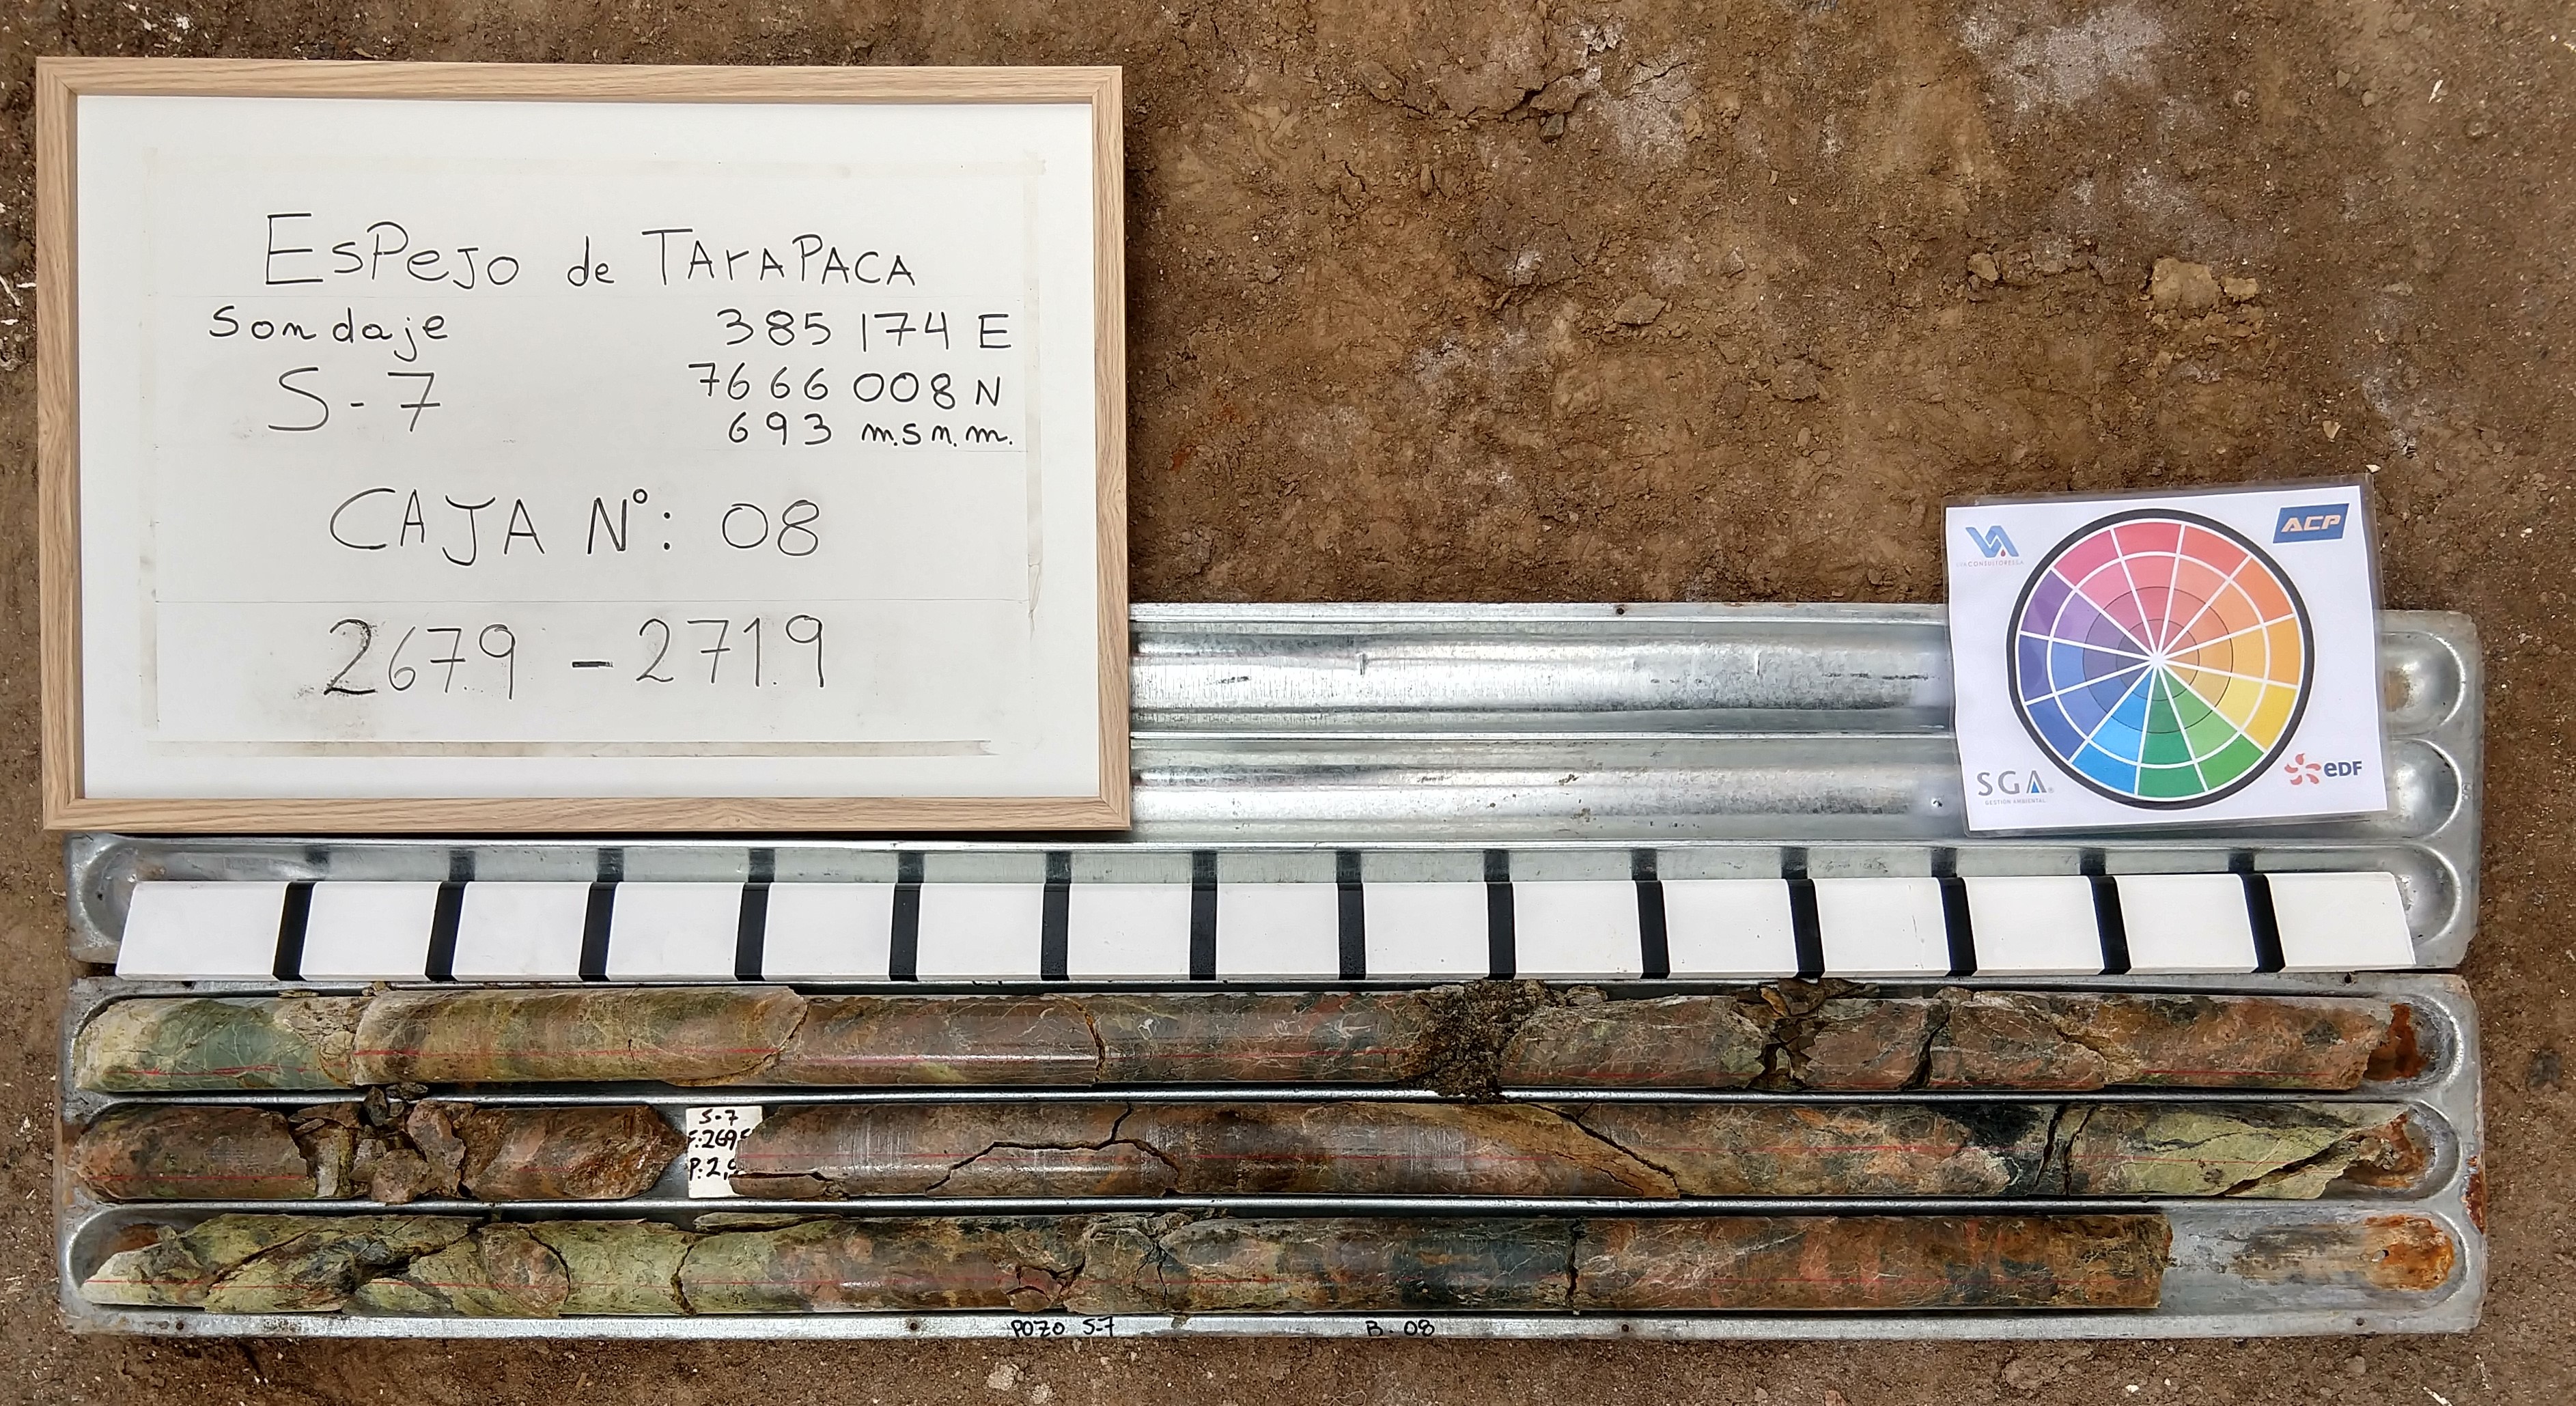 ESPEJO de TArAPACA
Sondaje
385 174 E
S-7
7666 008 N
693 m.s.n.m.
CAJA N°: 08
267.9 - 271.9
ACP
CONSULTORES
SGA
GESTIÓN AMBIENTAL
eDF
S-7
F:269
P:2,
POZO S-7
B. 08